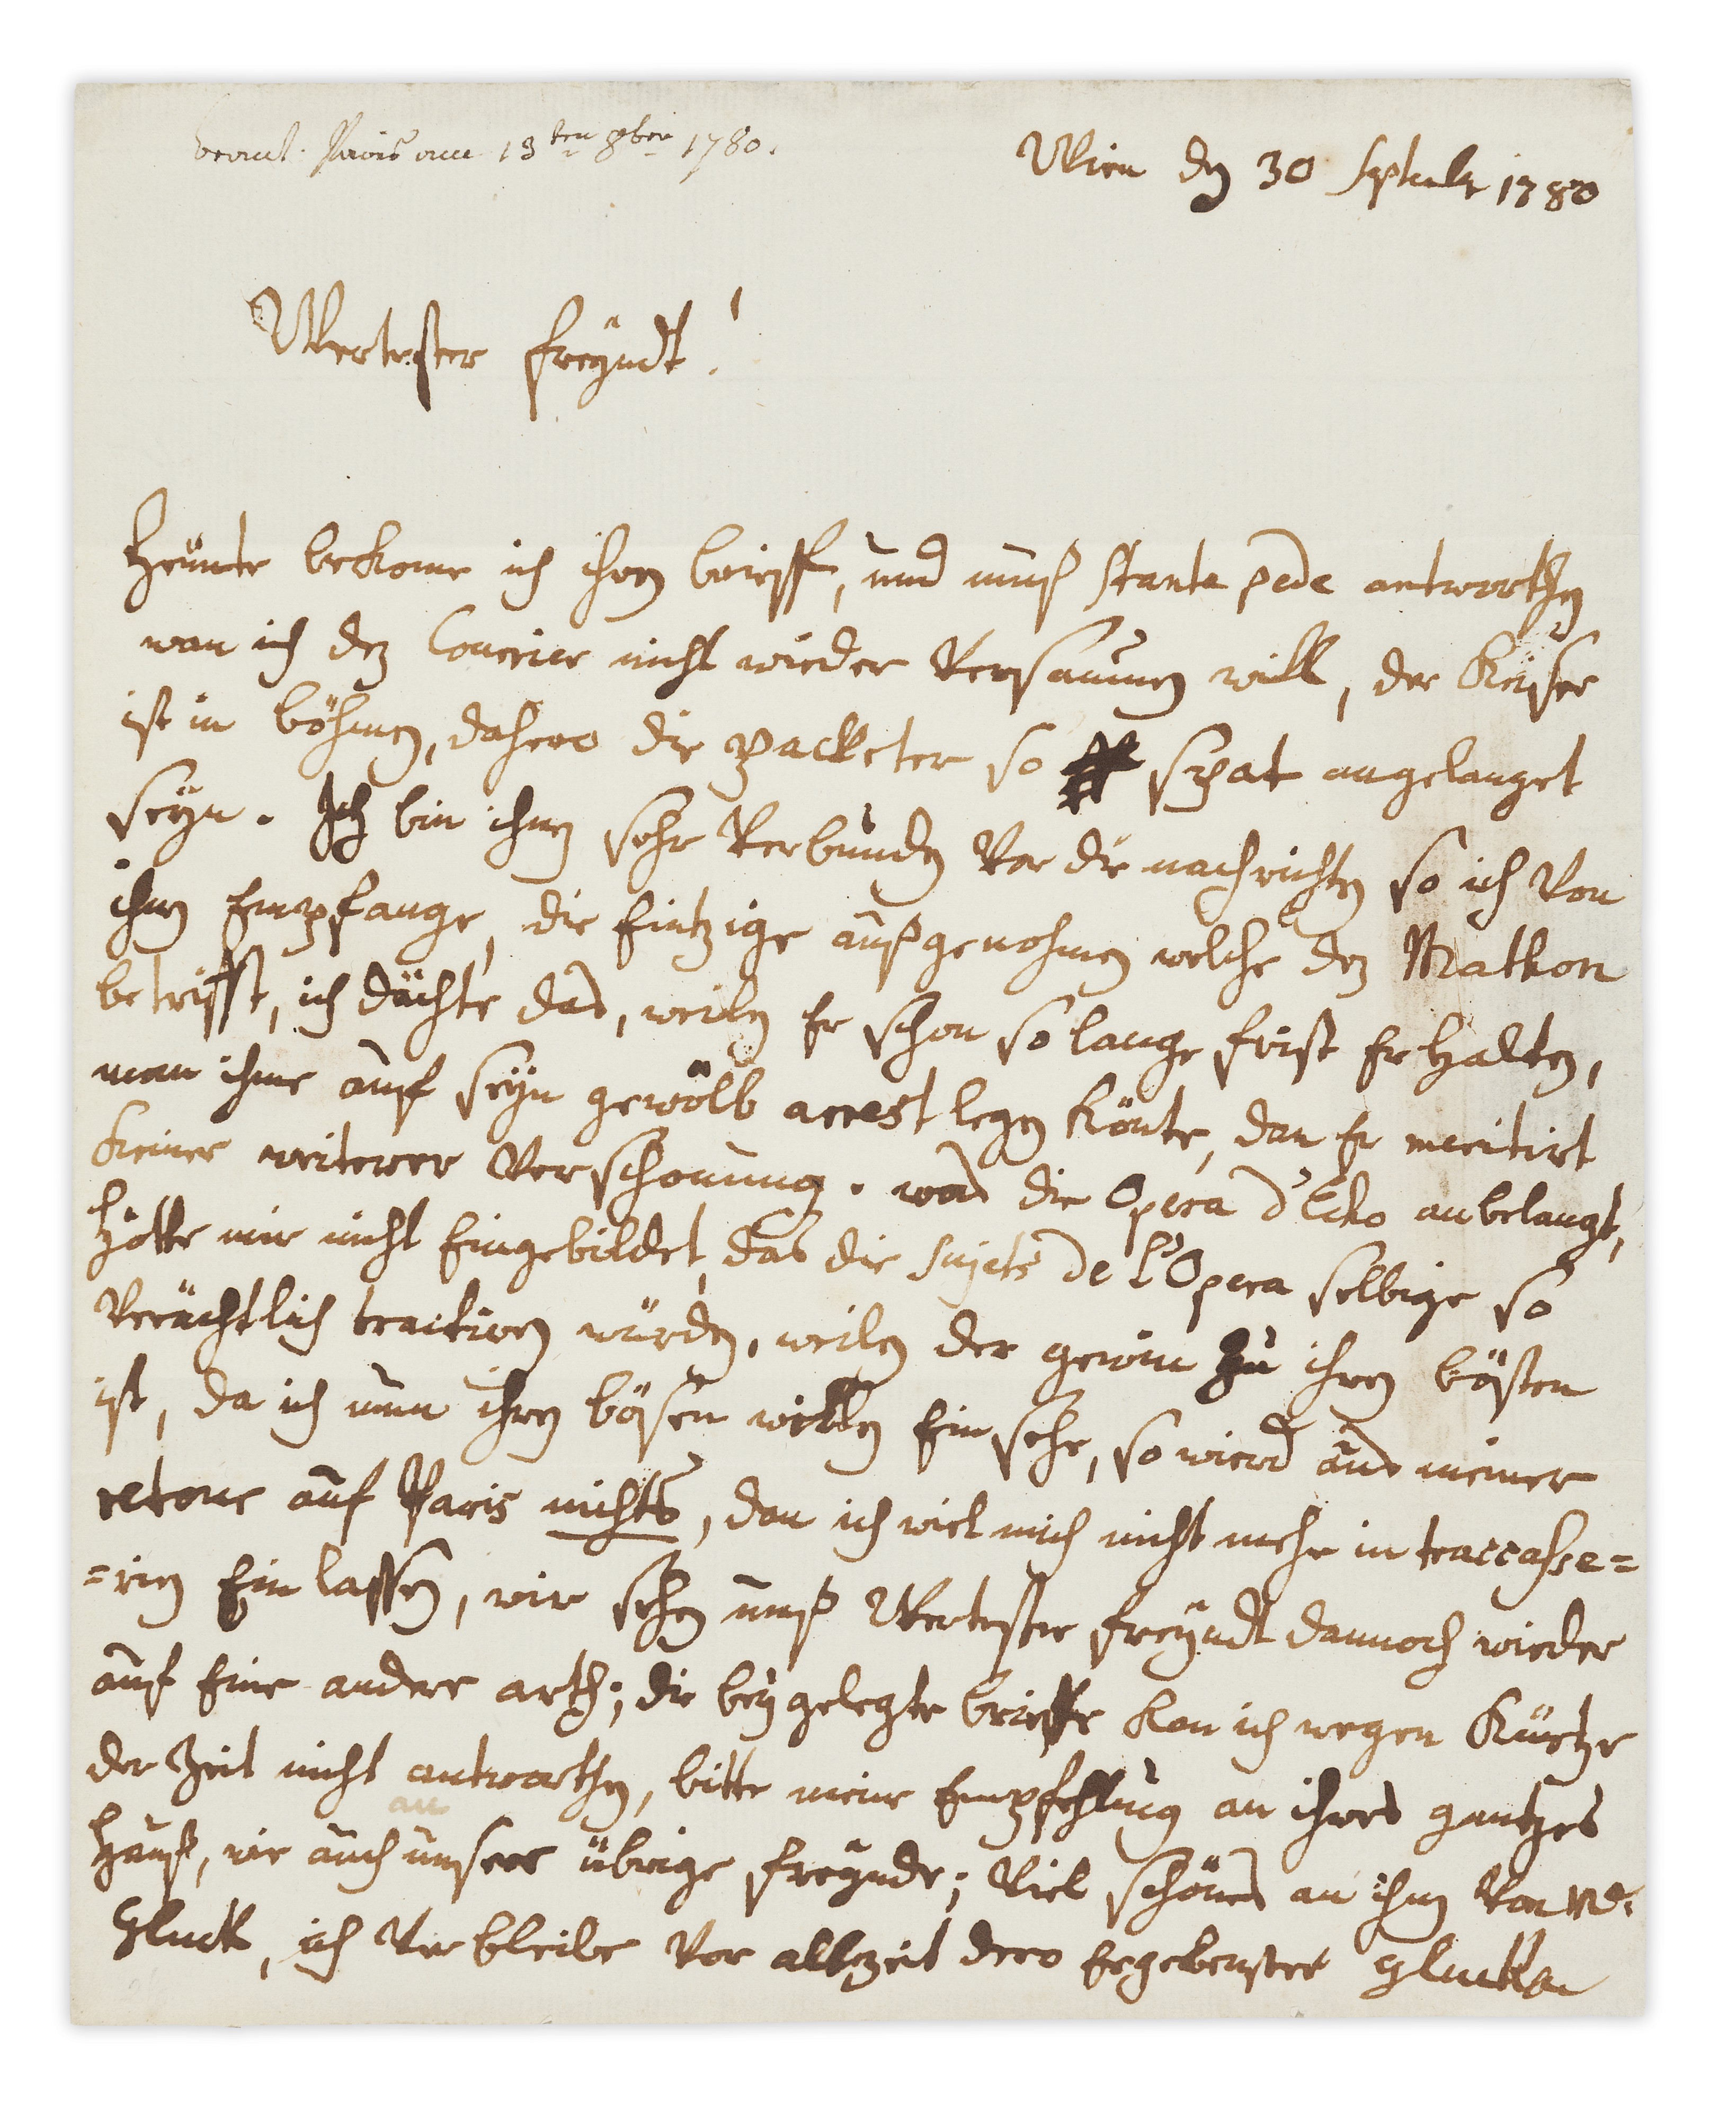 beant. Paris am 13ten 8ber 1780.
Wien den 30 Septembr 1780
Wertester freÿndt!
Heünte bekome ich ihren brieff, und muß stante pede antworthen
wan ich den Courier nicht wieder Versaumen will, der Keÿser
ist in böhmen, dahero die packeter so spat angelanget
seÿn. Ich bin ihnen sehr Verbunden Vor die nachrichten so ich Von
ihnen Empfange, die Eintzige außgenohmen welche den Mathon
betrifft, ich dächte das, weilen Er schon so lange frist Erhalten,
man ihme auf seÿn gewölb arrest legen könte, dan Er meritirt
keiner weiterer Verschonung. was die Opera d'Echo anbelangt,
hätte mir nicht Eingebildet, das die sujets de l'Opera selbige so
Verächtlich tractiren würden, weilen der gewin zu ihren bösten
ist, da ich nun ihren bösen willen Einsehe, so wierd aus meiner
retour auf Paris nichts, dan ich wiel mich nicht mehr in traccasse=
=rien Einlassen, wir sehen unß Wertester freÿndt dannoch wieder
auf Eine andere arth; die beÿgelegte brieffe kan ich wegen Kürtze
der Zeit nicht antworthen, bitte meine Empfehlung an ihres gantzes
Hauß, wie auch an unsere übrige freÿnde; Viel schönes an ihnen Von Me.
Gluck, ich Verbleibe Vor allezeit dero Ergebenster Gluck